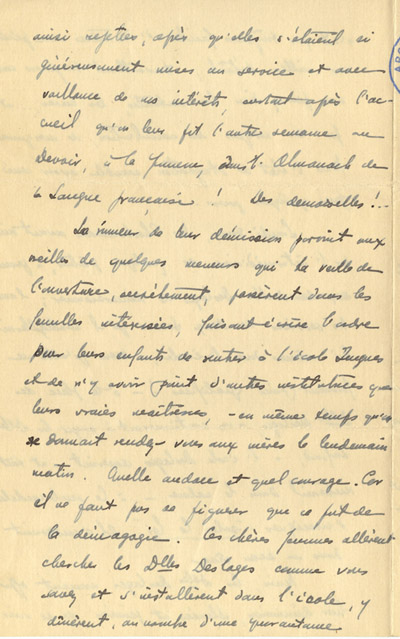 ainsi rejetées, après qu'elles s'étaient si
généreusement mises au service et avec
vaillance de nos intérêts, surtout après l'ac-
cueil qu'on leur fit l'autre semaine au
Devoir, à la femme, dans l'Almanach de
la Langue française ! Des demoiselles !..
La rumeur de leur démission parvint aux
oreilles de quelques meneurs qui la veille de
l'ouverture, secrètement, passèrent dans les
familles intéressées, faisant écrire l'ordre
pour leurs enfants de rentrer à l'école Guigues
et de n'y avoir point d'autres institutrices que
leurs vraies maîtresses, - en même temps qu'on
se donnait rendez-vous aux mères le lendemain
matin. Quelle audace et quel courage. Car
il ne faut pas se figurer que ce fut de
la démagogie. Ces chères femmes allèrent
chercher les Dlles Desloges comme vous
savez et s'installèrent dans l'école, y
dînèrent, au nombre d'une quarantaine